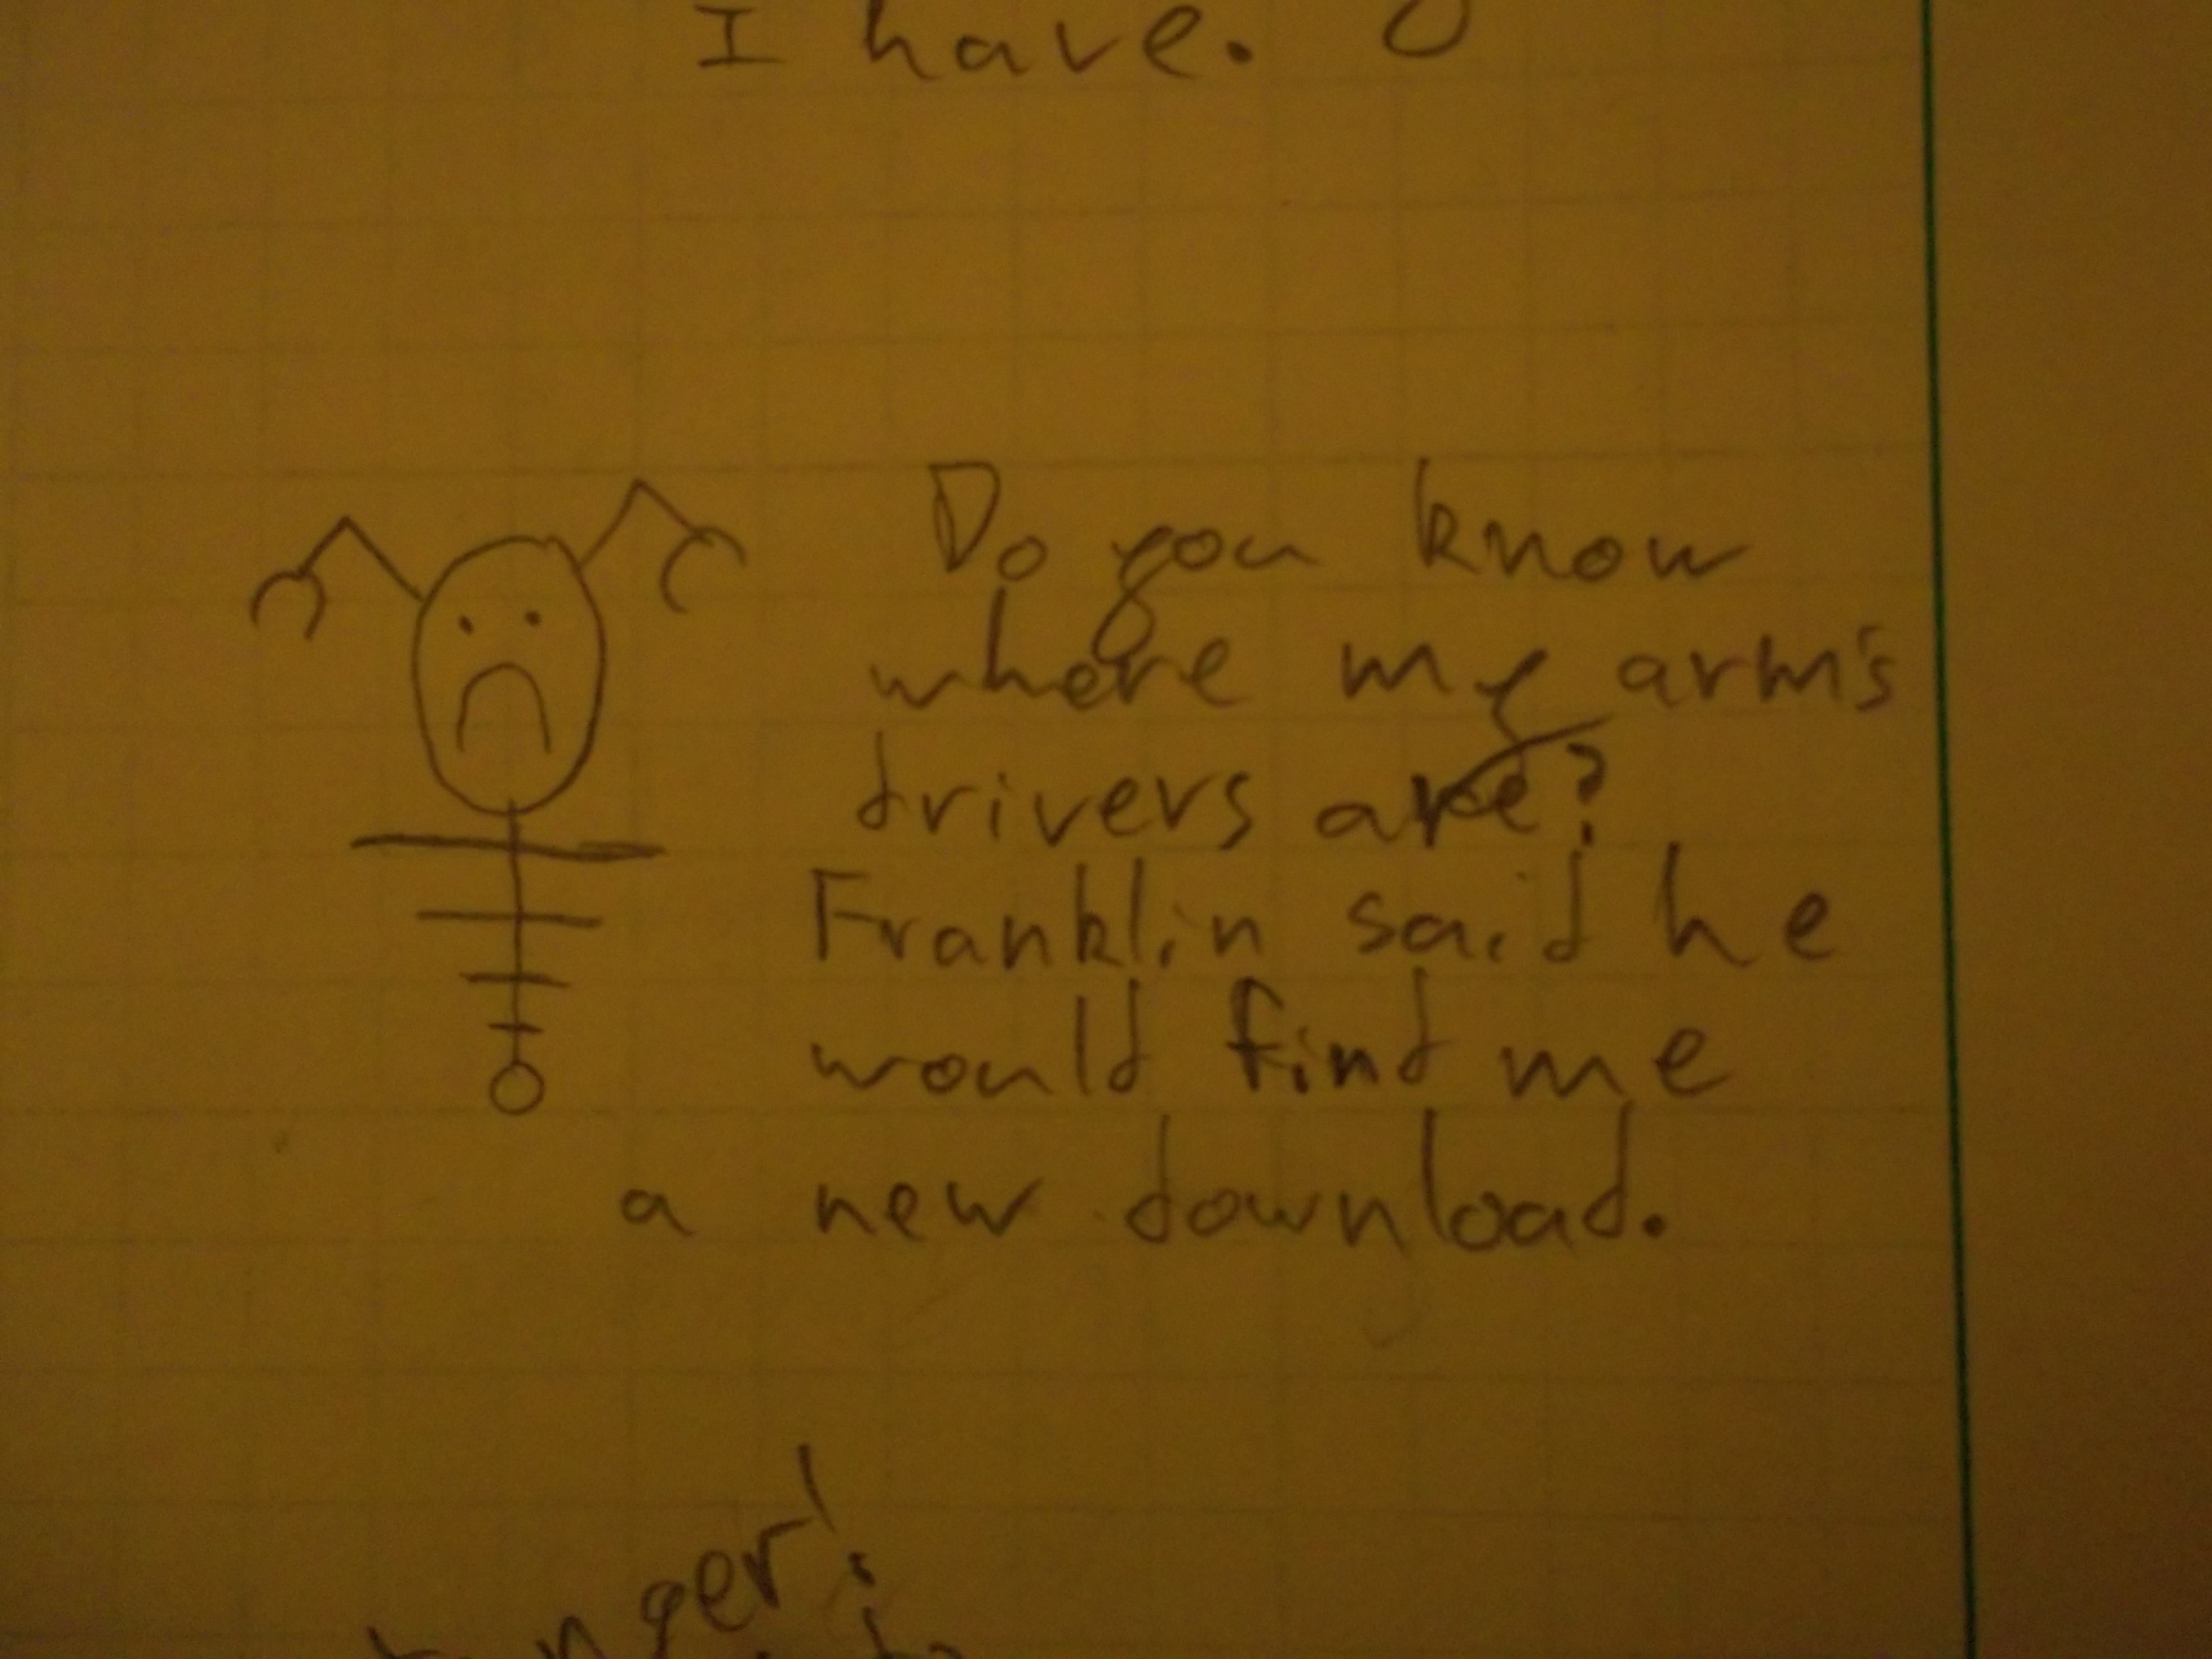 I have.
Do you know
where my arm's
drivers are?
Franklin said he
would find me
a new download.